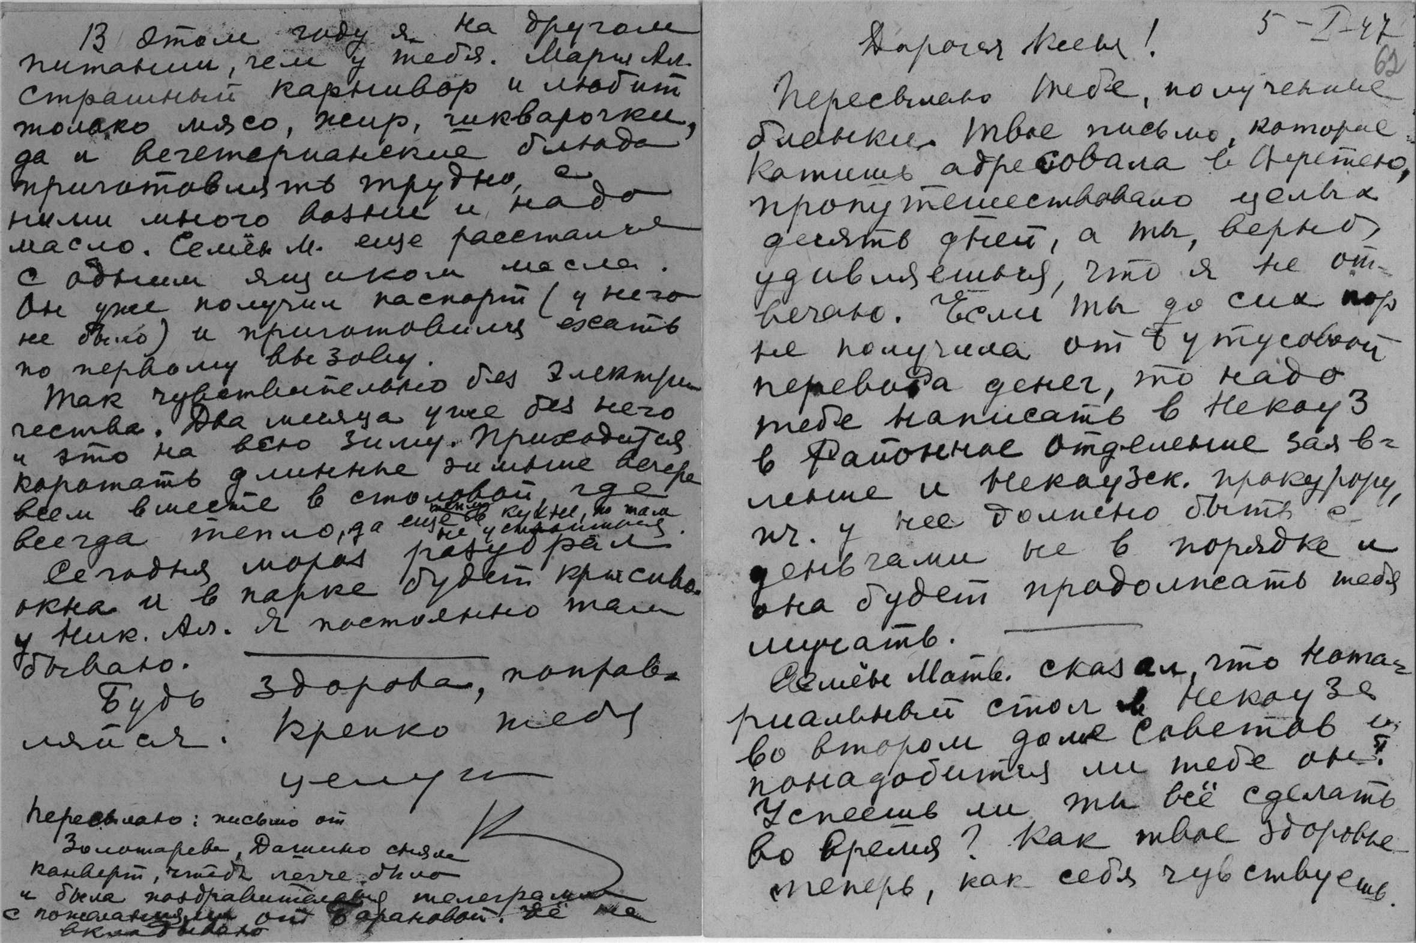 5 – I – 47
62
Дорогая Ксеня!
Пересылаю тебе, полученные
бланки. Твое письмо, которое
катишь адресовала в Веретею,
пропутешествовало целых
десять дней, а ты, верно,
удивляешься, что я не от-
вечаю. Если ты до сих пор
не получила от Бутусовой
перевода денег, то надо
тебе написать в Некоуз
в Районное отделение заяв-
ление и Некоузск. прокурору,
пч. у нее должно быть с
деньгами не в порядке и
она будет продолжать тебя
мучать.
Семён Матв. сказал, что нота-
риальный стол в Некоузе
во втором доме Советов и
понадобится ли тебе он?
Успеешь ли ты всё сделать
во время? Как твое здоровье
теперь, как себя чувствуешь.
В этом году я на другом
питании, чем у тебя. Мария Ал.
страшный карнивор и любит
только мясо, жир, шкварочки,
да и вегетерианские блюда
приготовлять трудно, с
ними много возни и надо
масло. Семён М. еще расстался
с одним ящиком масла.
Он уже получил паспорт (у него
не было) и приготовился ехать
по первому вызову.
Так чувствительно без электри
чества. Два месяца уже без него
и это на всю зиму. Приходится
коротать длинные зимние вечера
всем вместе в столовой, где
всегда тепло, да еще теплее в кухне, но там
не устроишься.
Сегодня мороз разубрал
окна и в парке будет красиво.
у Ник. Ал. Я постоянно там
бываю.
Будь здорова, поправ-
ляйся. Крепко тебя
целую
К
Пересылаю: письмо от
Золотарева, Дашино сняла
конверт, чтобы легче было
и была поздравительная телеграмма
с пожеланиями от Барановой. Её не
вкладываю